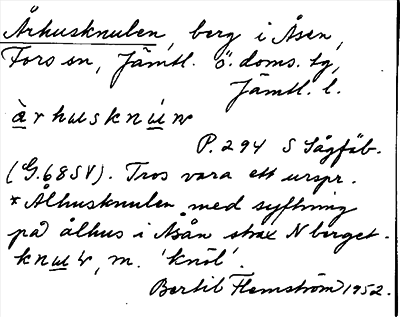 Århusknulen, berg i Åsen,
Fors sn, Jämtl. ö. doms. tg,
Jämtl. l.
àrhusknúw
P. 294 S Sågfäb.
(G. 68SV). Tros vara ett urspr.
*Ålhusknulen med syftning
på ålhus i Åsån strax N berget.
knuw, m. 'knöl'.
Bertil Flemström 1952.